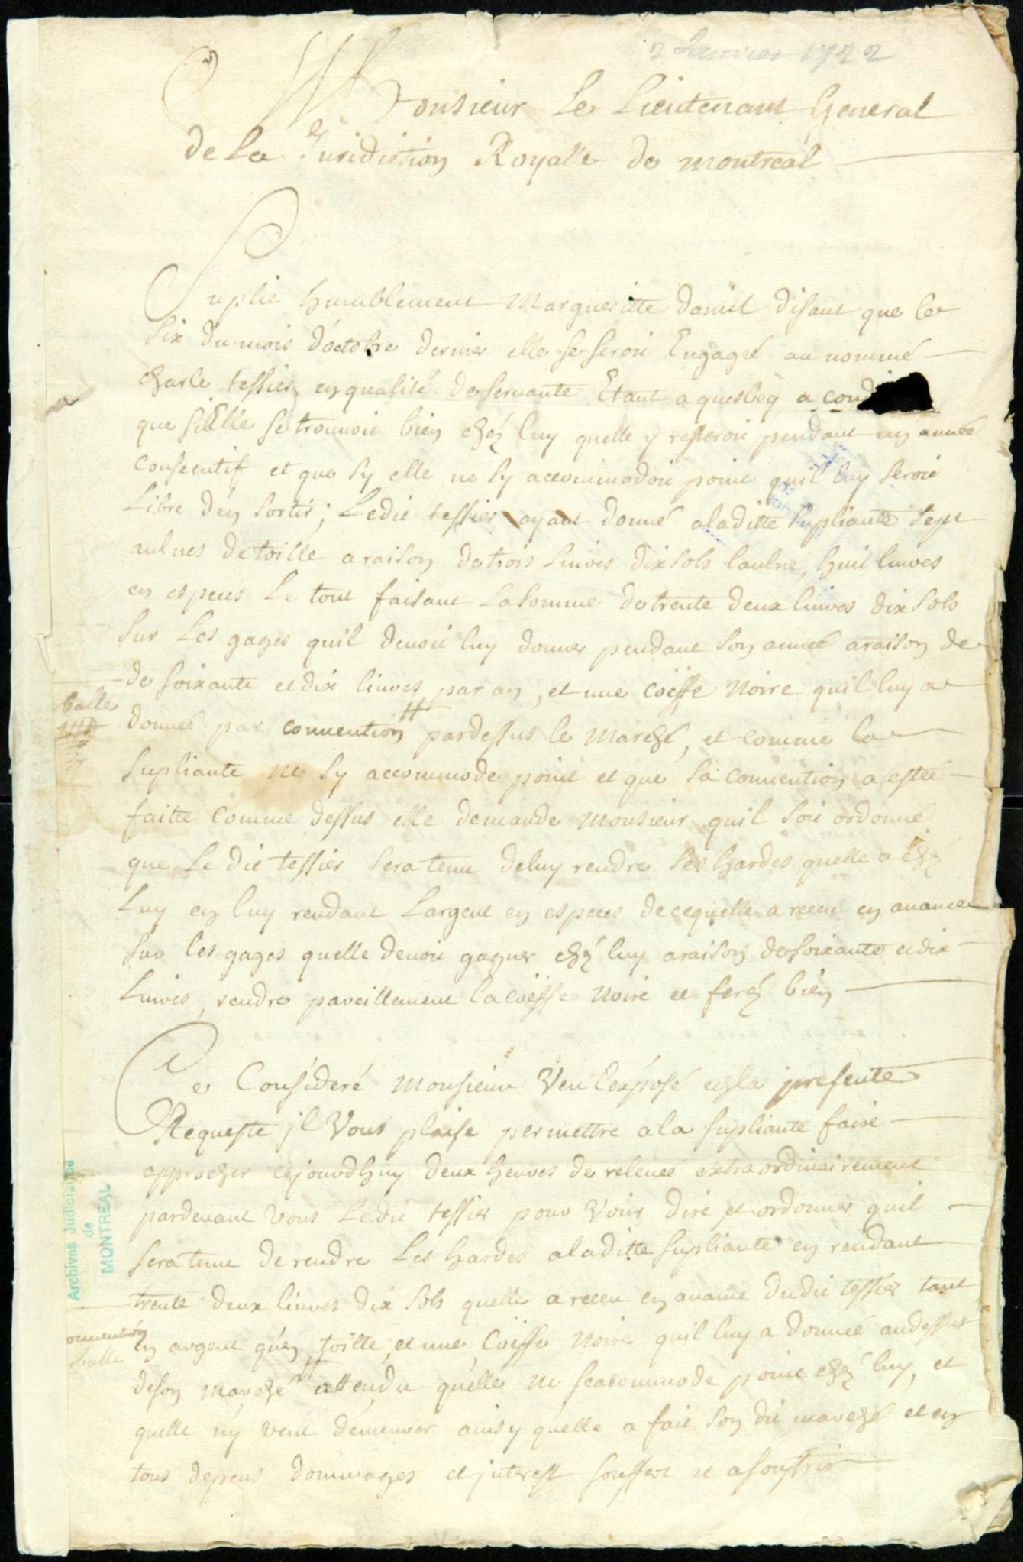 2 Janvier 1722
A Monsieur Le Lieutenant General
de La Juridiction Royalle de montreal
Suplie humblement Margueritte daniel disant que le
six du mois d'octobre dernier elle se seroit Engagée au nommé
charle tessier en qualité de servante Etant a quesbeq a condi
que si Elle se trouvoit bien chéz luy quelle y resteroit pendant un année
consecutif et que sy elle ne sy accommodoit point quil luy seroit
Libre d'en sortir; Ledit tessier ayant donné aladitte supliante sept
aulnes de toille a raison de trois Livres dix sols laulne, huit livres
en especes Le tout faisant La somme de trente deux livres dix sols
sur Les gages quil devoit luy donner pendant son année a raison de
de soixante et dix livres par an, et une coëffe noire quil luy a
donnée par convention pardessus le marché, et comme la
supliante ne sy accommode point et que sa convention a estée
faitte comme dessus elle demande Monsieur quil soit ordonné
que Le dit tessier sera tenu deluy rendre ses hardes quelle a chéz
Luy en luy rendant Largent en especes de cequelle a receu en avance
sur les gages quelle devoit gagner chéz luy a raison de soixante et dix
Livres, rendre pareillement la coëffe noire et feréz bien
Ce Consideré Monsieur Veu l'exposé en la presente
Requeste jl Vous plaise permettre a la supliante faire
approcher cejourdhuy deux heures de relevée extraordinairement
pardevant vous Ledit tessier pour Voir dire et ordonner quil
sera tenu de rendre Les hardes aladitte supliante en rendant
trente deux livres dix sols quelle a receu en avance dudit tessier tant
en argent qu'en toille, et une Coëffe noire quil luy a donnée audessus
deson marché attendu qu'elle ne seacommode point chéz luy, et
quelle ny veut demeurer ainsy quelle a fait son dit marché et en
tous depens dommages et jnterest souffert et a souffrir
balle
convention
balle
Archives Judiciaires
de
MONTREAL